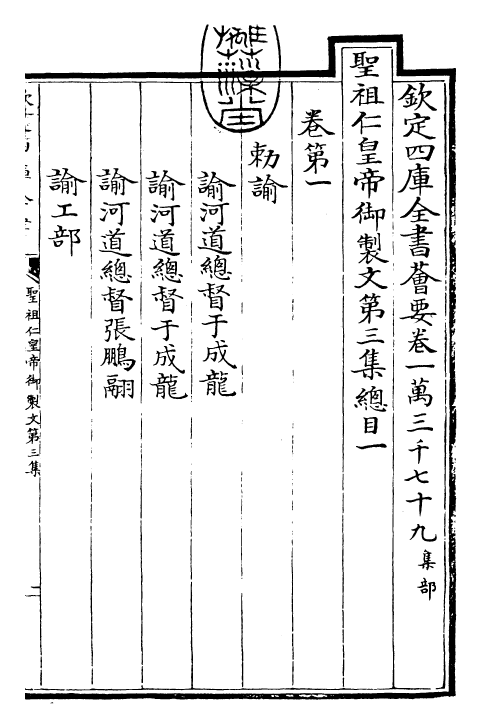 欽定四庫全書薈要卷一萬三千七十九 集部
聖祖仁皇帝御製文第三集總目一
卷第一
勅諭
諭河道總督于成龍
諭河道總督于成龍
諭河道總督張鵬翮
諭工部
聖祖仁皇帝御製文第三集